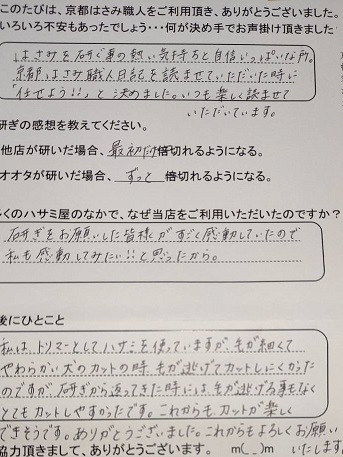 このたびは、京都はさみ職人をご利用頂き、ありがとうございました。
いろいろ不安もあったでしょう・・・何が決め手でお声掛け頂きました
はさみを研ぐ事の熱い気持ちと自信いっぱいな所。
京都はさみ職人日記を読ませていただいた時に
「任せよう!!」と決めました。いつも楽しく読ませて
いただいています。
研ぎの感想を教えてください。
他店が研いだ場合、最初だけ倍切れるようになる。
オオタが研いだ場合、ずっと倍切れるようになる。
多くのハサミ屋のなかで、なぜ当店をご利用いただいたのですか?
研ぎをお願いした皆様がすごく感動していたので
私も感動してみたい!!と思ったから。
後にひとこと
私は、トリマーとしてハサミを使っていますが、毛が細くて
やわらかい犬のカットの時、毛が逃げてカットしにくかった
のですが、研ぎから返ってきた時には、毛が逃げる事もなく
とてもカットしやすかったです。これからも、カットが楽しく
できそうです。ありがとうございました。これからもよろしくお願い
協力頂きまして、ありがとうございます。 m(_ _)m いたします。